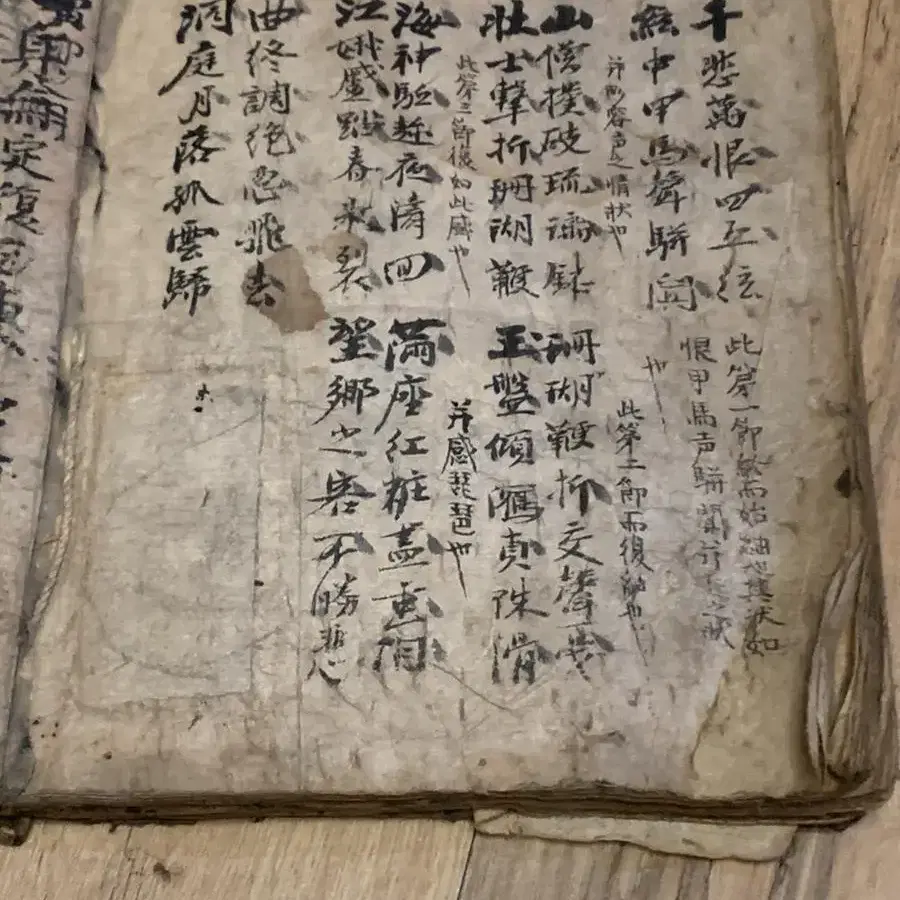 千悲萬恨四五絃
此第一節
而始
也其狀如
絃中甲馬聲駢闐
恨甲馬声駢闐
之狀
也
并形容声之情狀也
此第二節而復
也
山僧撲破琉璃鉢 珊瑚鞭折交聲戛
壮士擊折珊瑚鞭 玉盤傾瀉真珠滑
此第三節後如此感也 并感琵琶也
海神驅趂夜濤回 滿座紅粧盡垂泪
江娥蹙踏春氷裂 望鄉之客不勝悲
曲終調絶忽飛去
洞庭月落孤雲歸
定復